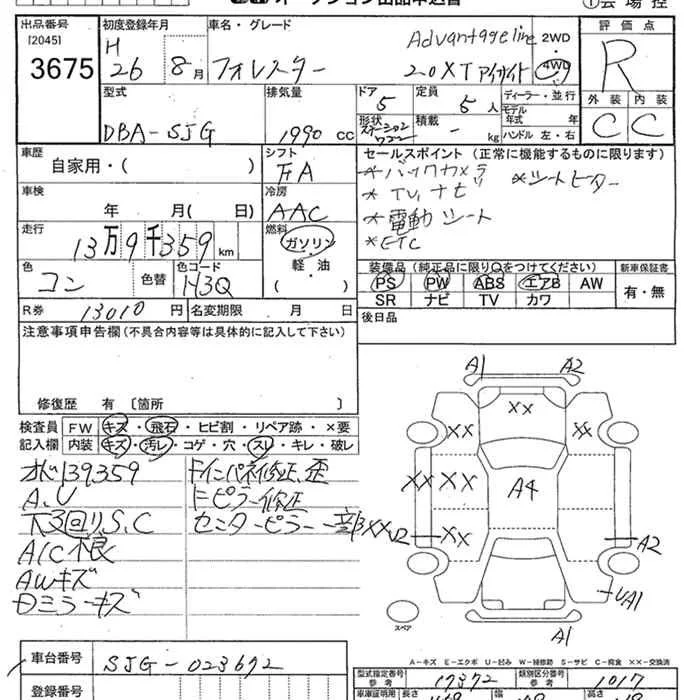 オークション出品申込書
①会場控
出品番号
[2045]
3675
初度登録年月
H
26 8月
車名・グレード
Advantageline
フォレスター 2.0XTアイサイト
2WD
4WD
評価点
R
外装 内装
C C
型式
DBA-SJG
排気量
1990 cc
ドア
5
定員
5人
ディーラー・並行
形状
ステーションワゴン
積載
- kg
モデル年式 年
ハンドル 左・右
車歴
自家用・( )
シフト
FA
セールスポイント (正常に機能するものに限ります)
*バックカメラ *シートヒーター
*TV,ナビ
*電動シート
*ETC
車検
年 月( 日)
冷房
AAC
走行
13万9千359km
燃料
ガソリン
・
軽・油
・
( )
色
コン
色替
色コード
H3Q
装備品 (純正品に限り○をつけてください)
PS PW ABS エアB AW
SR ナビ TV カワ
新車保証書
有・無
R券 13010円
名変期限 月 日
後日品
注意事項申告欄(不具合内容等は具体的に記入して下さい)
修復歴 有 〔箇所 〕
検査員
記入欄
FW キズ・飛石・ヒビ割・リペア跡・×要
内装 キズ・汚レ・コゲ・穴・スレ・キレ・破レ
オド139359
A.U
下3回りS.C
A/C不良
AWキズ
Dミラーキズ
FインパネイI修正、歪
Fピラー修正
センターピラー一部XX
A1 A2
XX
XX XX
XX XX A4
U2 XX
A2
UA1
A1
スペア
A-キズ E-エクボ U-凹み W-補修跡 S-サビ C-腐食 ××-交換済
車台番号
SJG-023672
登録番号
型式指定番号
参考
17372
類別区分番号
参考
1017
車庫証明用
長さ
幅
高さ